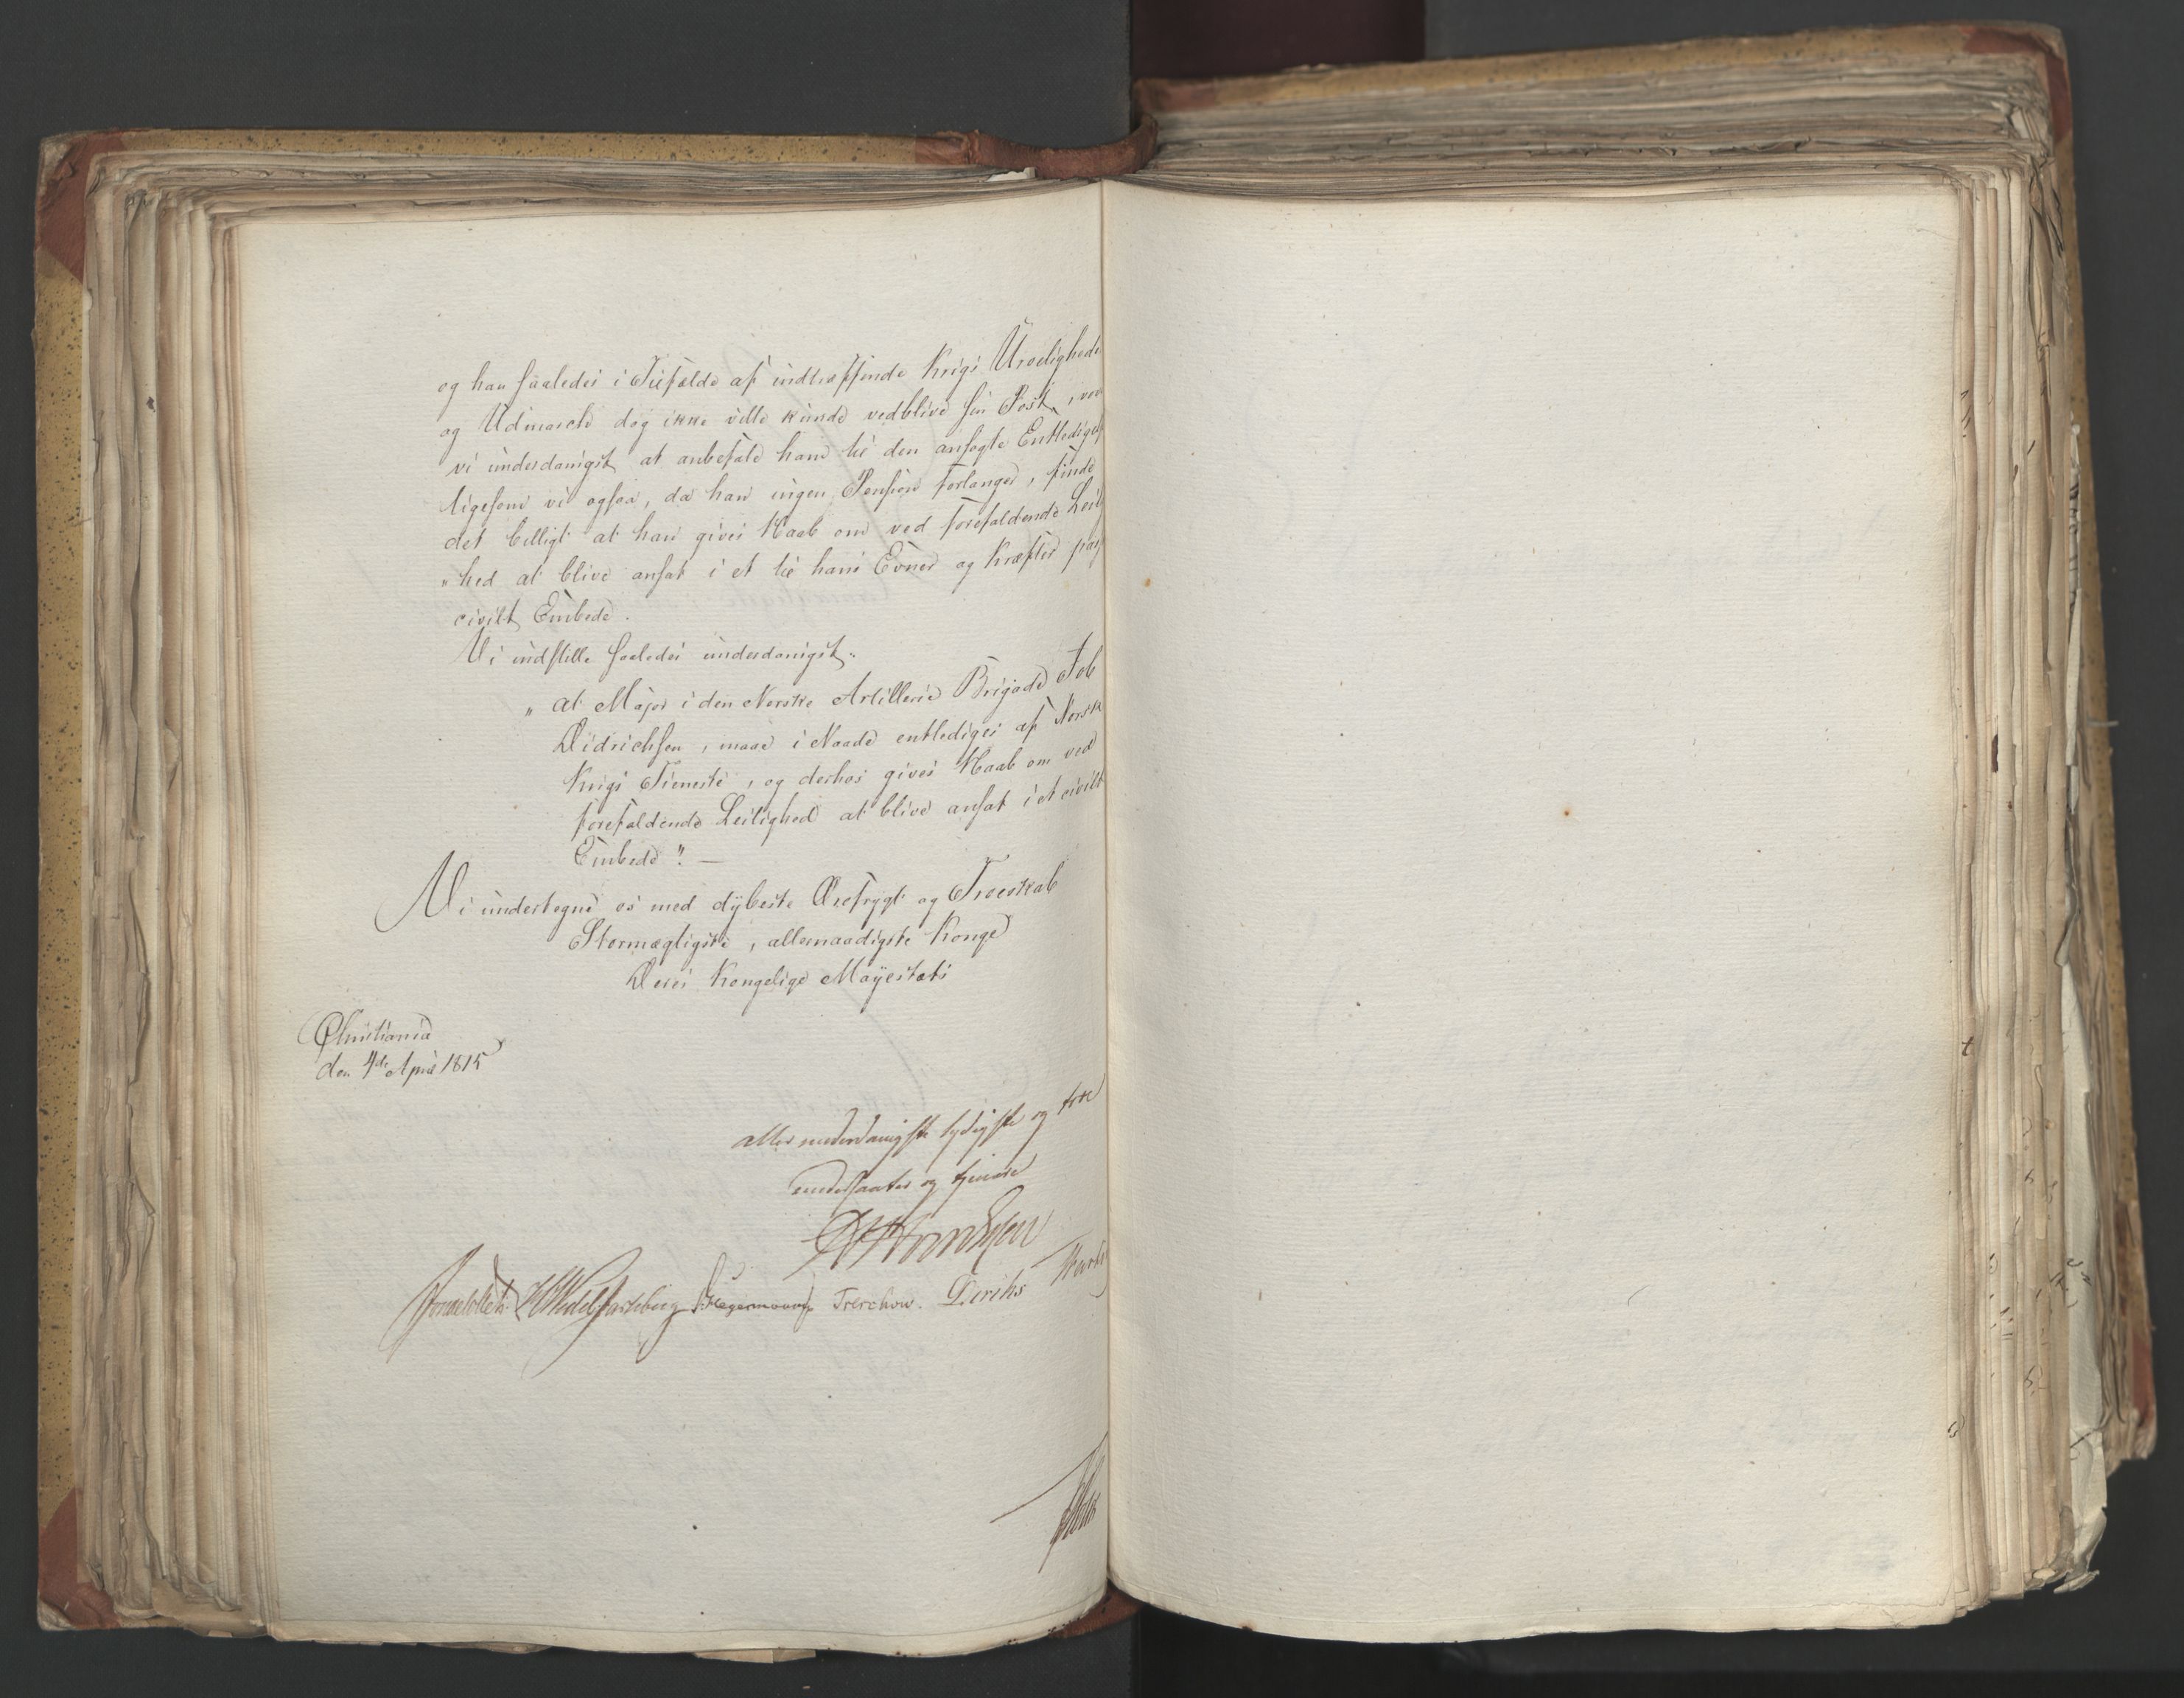 og han saaledes i Tilfælde af indtræffende Krigs Uroelighede
og Udmarche dog ikke ville kunde vedblive sin Post, vove
vi underdanigst at anbefale ham til den ansøgte Entledigels
ligesom vi ogsaa, da han ingen Pension forlanger, finde
det billigt at han gives Haab om ved forefaldende Leilig
"hed at blive ansat i et til hans Evner og Kræfter pas
civilt Embede.
Vi indstille saaledes underdanigst:
"at Major i den Norske Artillerie Brigade Job
Didrichsen, maae i Naade entlediges af Norsk
Krigs Tieneste, og derhos gives Haab om ved
forefaldende Leilighed at blive ansat i et civilt
Embede". —
Vi undertegne os med dÿbeste Ærefrygt og Troeskab
Stormægtigste, allernaadigste Konge
Deres Kongelige Mayestæts
Christiania
den 4de April 1815
allerunderdanigste lydigste og troe
undersaatter og tjenere
Sommerhielm HWedel Jarlsberg Hegermann Treschow. Diriks